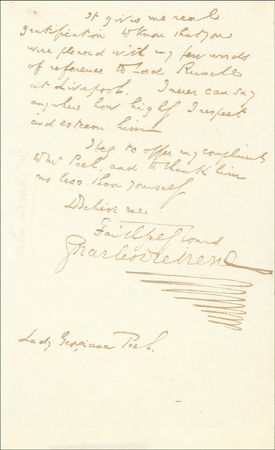 It gives me real
gratification to know that you
were pleased with my few words
of reference to Lord Russell
at Liverpool. I never can say
anywhere how highly I respect
and esteem him
I beg to offer my compliments
to Mr Peel, and to thank him
no less than yourself
Believe me
Faithfully Yours
Charles Dickens
Lady Georgiana Peel.